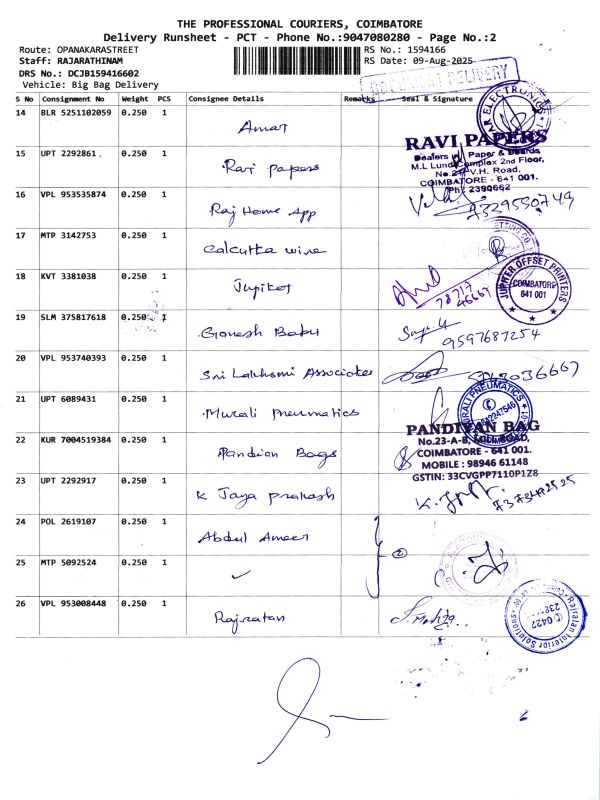 THE PROFESSIONAL COURIERS, COIMBATORE
Delivery Runsheet - PCT - Phone No.:9047080280 - Page No.:2
Route: OPANAKARASTREET
RS No.: 1594166
Staff: RAJARATHINAM
RS Date: 09-Aug-2025
DRS No.: DCJB159416602
Vehicle: Big Bag Delivery
DELIVERY
S No Consignment No Weight PCS Consignee Details Remarks Seal & Signature
14 BLR 5251102059 0.250 1 Amar
ELECTRONICS
15 UPT 2292861 0.250 1 Ravi papers
RAVI PAPERS
Dealers in Paper & Boards
M.L Lund Complex 2nd Floor,
V.H. Road,
COIMBATORE - 641 001.
Ph: 2390662
16 VPL 953535874 0.250 1 Raj Home App
17 MTP 3142753 0.250 1 Calcutta wire
18 KVT 3381038 0.250 1 Jupiter
JUPITER OFFSET PRINTERS
COIMBATORE
641 001
19 SLM 375817618 0.250 1 Ganesh Babu
9597687254
20 VPL 953740393 0.250 1 Sri Lakhsmi Associates
21 UPT 6089431 0.250 1 Murali Pneumatics
MURALI PNEUMATICS
22 KUR 7004519384 0.250 1 Pandian Bags
PANDIYAN BAG
No.23-A-B, MILL ROAD,
COIMBATORE - 641 001.
MOBILE : 98946 61148
GSTIN: 33CVGPP7110P1Z8
23 UPT 2292917 0.250 1 K Jaya prakash
24 POL 2619107 0.250 1 Abdul Ameer
2
25 MTP 5092524 0.250 1 ✓
26 VPL 953008448 0.250 1 Rajratan
Rajratan Interior Solutions
0422